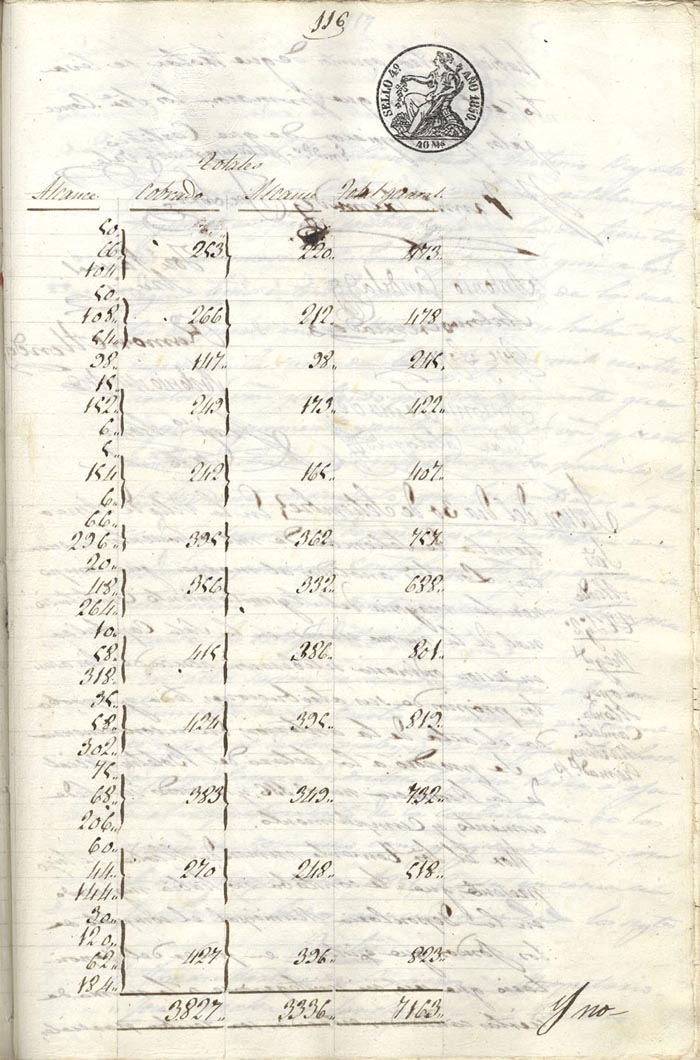 116
SELLO 4º AÑO 1850.
40 Ms
Totales
Alcance Cobrado Alcance Total general
50..
66.. 253 220.. 473..
104..
50..
108.. 266 212.. 478..
54..
98.. 147.. 98.. 245..
15..
152.. 249 173.. 422..
6..
5..
154.. 242 165.. 407..
6..
66..
296.. 395 362.. 757..
20..
48.. 356 332.. 688..
264..
10..
58.. 415 386.. 801..
318..
35..
58.. 424 395.. 819..
302..
75..
68.. 383 349.. 732..
206..
60..
44.. 270 248.. 518..
144..
30..
120..
62.. 427 396.. 823..
184..
3827.. 3336.. 7163..
Y no